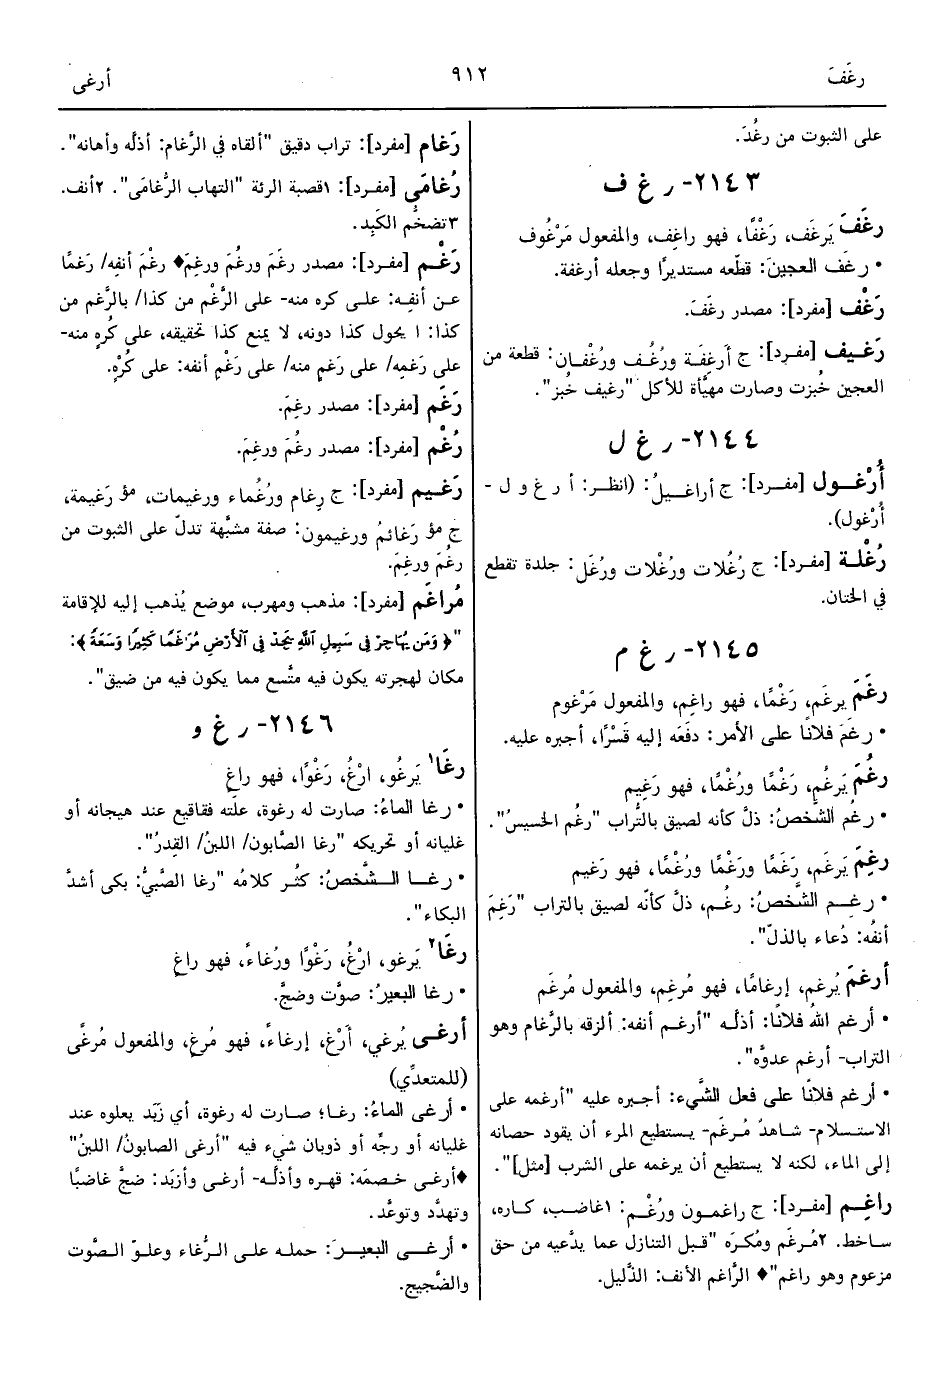 رغَفَ
٩١٢
أرغى
على الثبوت من رغُدَ.
٢١٤٣- ر غ ف
رغَفَ يَرغَف، رَغْفًا، فهو راغِف، والمفعول مَرْغُوف
• رغَف العجينَ: قطّعه مستديرًا وجعله أرغفة.
رَغْف [مفرد]: مصدر رغَفَ.
رَغيف [مفرد]: ج أَرغِفَة ورُغُف ورُغْفان: قطعة من
العجين خُبزت وصارت مهيَّأة للأكل "رغيف خُبز".
٢١٤٤- ر غ ل
أُرْغول [مفرد]: ج أراغيلُ: (انظر: أ ر غ و ل -
أُرْغول).
رُغْلة [مفرد]: ج رُغُلات ورُغْلات ورُغَل: جلدة تقطع
في الختان.
٢١٤٥- ر غ م
رغَمَ يَرغَم، رَغْمًا، فهو راغِم، والمفعول مَرْغوم
• رغَمَ فلانًا على الأمر: دفَعَه إليه قَسْرًا، أجبره عليه.
رغُمَ يَرغُم، رَغْمًا ورُغْمًا، فهو رَغِيم
• رغُم الشَّخصُ: ذلَّ كأنه لصيق بالتُّراب "رغُم الخسيسُ".
رغِمَ يَرغَم، رَغَمًا ورَغْمًا ورُغْمًا، فهو رَغيم
• رغِم الشَّخصُ: رغُم، ذلَّ كأنّه لصيق بالتراب "رَغِمَ
أنفُه: دُعاء بالذلّ".
أرغمَ يُرغم، إرغامًا، فهو مُرغِم، والمفعول مُرغَم
• أرغم اللهُ فلانًا: أذلّه "أرغم أنفه: ألزقه بالرَّغام وهو
التراب- أرغم عدوَّه".
• أرغم فلانًا على فعل الشَّيء: أجبره عليه "أرغمه على
الاستسلام- شاهدٌ مُرغَم- يستطيع المرء أن يقود حصانه
إلى الماء، لكنه لا يستطيع أن يرغمه على الشرب [مثل]".
راغِم [مفرد]: ج راغمون ورُغْم: ١غاضب، كاره،
ساخط. ٢مُرغَم ومُكرَه "قبل التنازل عما يدَّعيه من حق
مزعوم وهو راغم"♦ الرَّاغم الأنف: الذَّليل.
رَغام [مفرد]: تراب دقيق "ألقاه في الرَّغام: أذلّه وأهانه".
رُغامَى [مفرد]: ١قصبة الرئة "التهاب الرُّغامَى". ٢أنف.
٣تضخُّم الكَبِد.
رَغْم [مفرد]: مصدر رغَمَ ورغُمَ ورغِمَ♦ رغْمَ أنفِه/ رَغمًا
عن أنفِه: على كره منه- على الرَّغْم من كذا/ بالرَّغم من
كذا: ا يحول كذا دونه، لا يمنع كذا تحقيقه، على كُرهٍ منه-
على رَغمِه/ على رَغمٍ منه/ على رَغْمِ أنفه: على كُرْهٍ.
رَغَم [مفرد]: مصدر رغِمَ.
رُغْم [مفرد]: مصدر رغُمَ ورغِمَ.
رَغيم [مفرد]: ج رِغام ورُغَماء ورغيمات، مؤ رَغيمة،
ج مؤ رَغائمُ ورغيمون: صفة مشبَّهة تدلّ على الثبوت من
رغُمَ ورغِمَ.
مُراغَم [مفرد]: مذهب ومهرب، موضع يُذهب إليه للإقامة
"﴿ وَمَن يُهَاجِرْ فِي سَبِيلِ ٱللَّهِ يَجِدْ فِي ٱلْأَرْضِ مُرَاغَمًا كَثِيرًا وَسَعَةً ﴾:
مكان لهجرته يكون فيه متَّسع مما يكون فيه من ضيق".
٢١٤٦- ر غ و
رغَا١ يَرغُو، ارْغُ، رَغْوًا، فهو راغٍ
• رغا الماءُ: صارت له رغوة، علَته فقاقيع عند هيجانه أو
غليانه أو تحريكه "رغا الصَّابون/ اللبنُ/ القِدرُ".
• رغا الشَّخصُ: كثُر كلامُه "رغا الصَّبيُّ: بكى أشدَّ
البكاء".
رغَا٢ يَرغو، ارْغُ، رَغْوًا ورُغاءً، فهو راغٍ
• رغا البعيرُ: صوَّت وضجَّ.
أرغى يُرغي، أَرْغِ، إرغاءً، فهو مُرغٍ، والمفعول مُرغًى
(للمتعدِّي)
• أرغى الماءُ: رغا؛ صارت له رغوة، أي زَبَد يعلوه عند
غليانه أو رجِّه أو ذوبان شيء فيه "أرغى الصابونُ/ اللبنُ"
♦أرغى خصمَه: قهره وأذلّه- أرغى وأزبَد: ضجَّ غاضبًا
وتهدَّد وتوعَّد.
• أرغى البعيرَ: حمله على الرُّغاء وعلوّ الصَّوت
والضَّجيج.